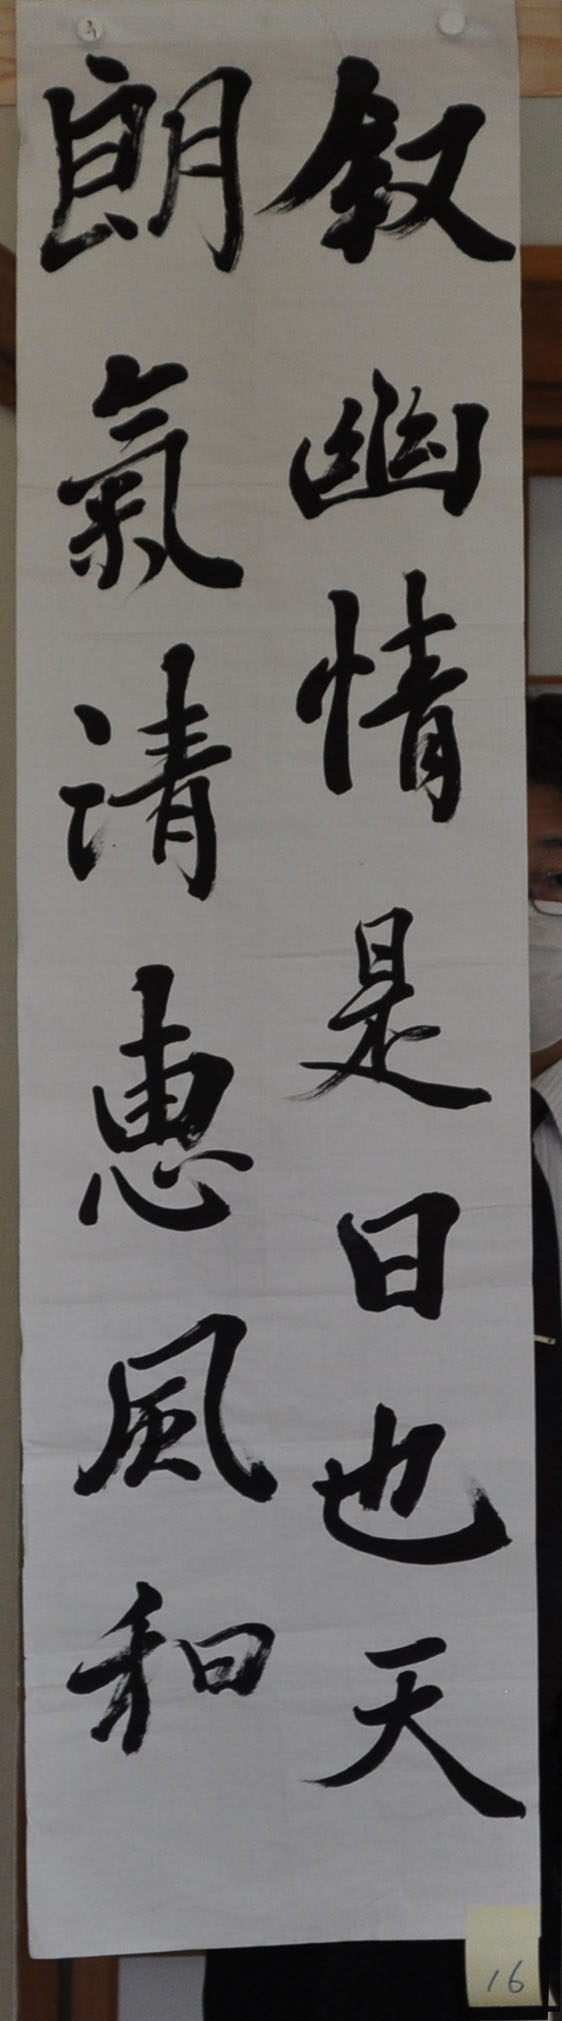 叙幽情是日也天
朗氣清惠風和
16